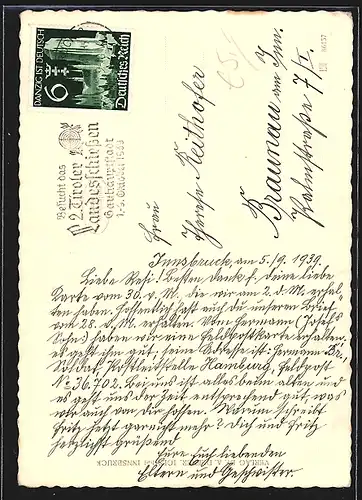 DANZIG IST DEUTSCH
6
Deutsches Reich
Besucht das
2. Tiroler
Landesschießen
Gauhauptstadt
Frau
Therese Reithofer
Braunau am Inn.
Palmstraße 7/I.
Innsbruck, am 5./9. 1939.
Liebe Resi! Besten Dank f. deine liebe
Karte vom 30. v. M. die wir am 2. d. M. erhal-
ten haben. Hoffentlich hast auch du unseren Brief
vom 28. v. M. erhalten. Vom Hermann (Josefs
Sohn) haben wir eine Feldpostkarte erhalten,
es geht ihm gut, seine Adresse ist: Hermann
Soldat, Postleitstelle Hamburg, Feldpost
No 36.702. Bei uns ist alles beim alten und
es geht uns der Zeit entsprechend gut, was
wir auch von dir hoffen. Warum schreibt
Fritz jetzt gar nicht mehr? Dich und Fritz
herzlichst grüßend
Eure Euch liebenden
Eltern und Geschwister.